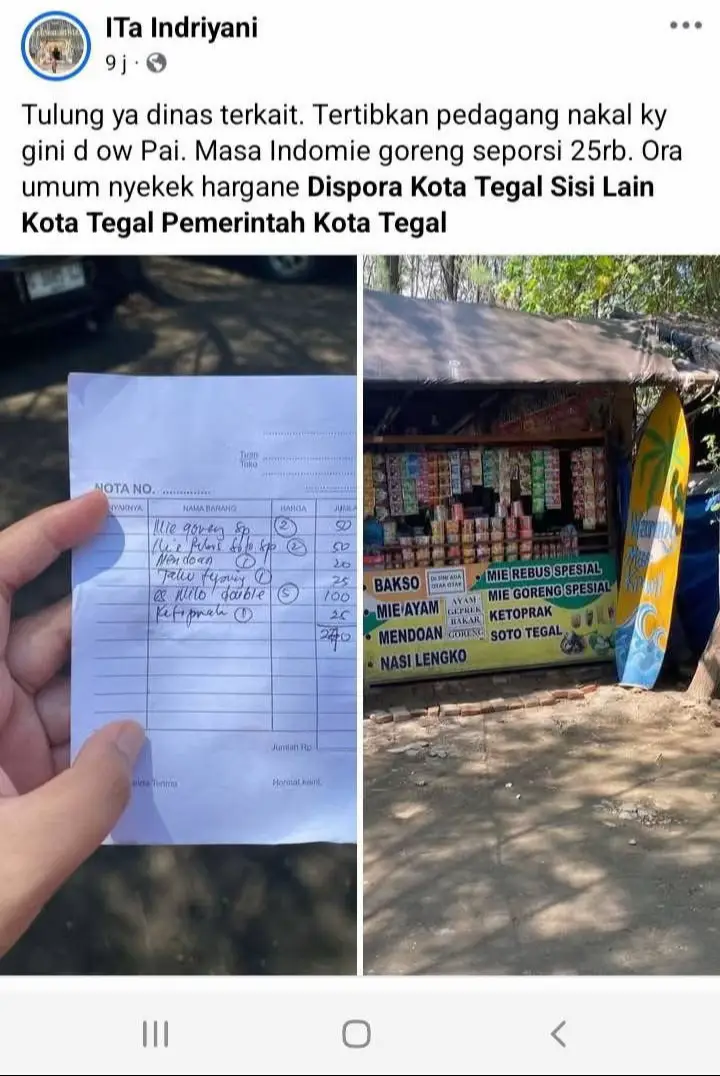 ITa Indriyani
9 j
Tulung ya dinas terkait. Tertibkan pedagang nakal ky
gini d ow Pai. Masa Indomie goreng seporsi 25rb. Ora
umum nyekek hargane Dispora Kota Tegal Sisi Lain
Kota Tegal Pemerintah Kota Tegal
Tuan
Toko
NOTA NO.
NAMA BARANG HARGA
Mie goreng Sp 2 50
Mie Rebus Soto sp 2 50
Mendoan 1 20
Tahu 1 25
es Milo double 5 100
Ketoprak 1 25
Jumlah Rp.
Hormat kami,
BAKSO
MIE AYAM
MENDOAN
NASI LENGKO
AYAM
GEPREK
BAKAR
GORENG
MIE REBUS SPESIAL
MIE GORENG SPESIAL
KETOPRAK
SOTO TEGAL